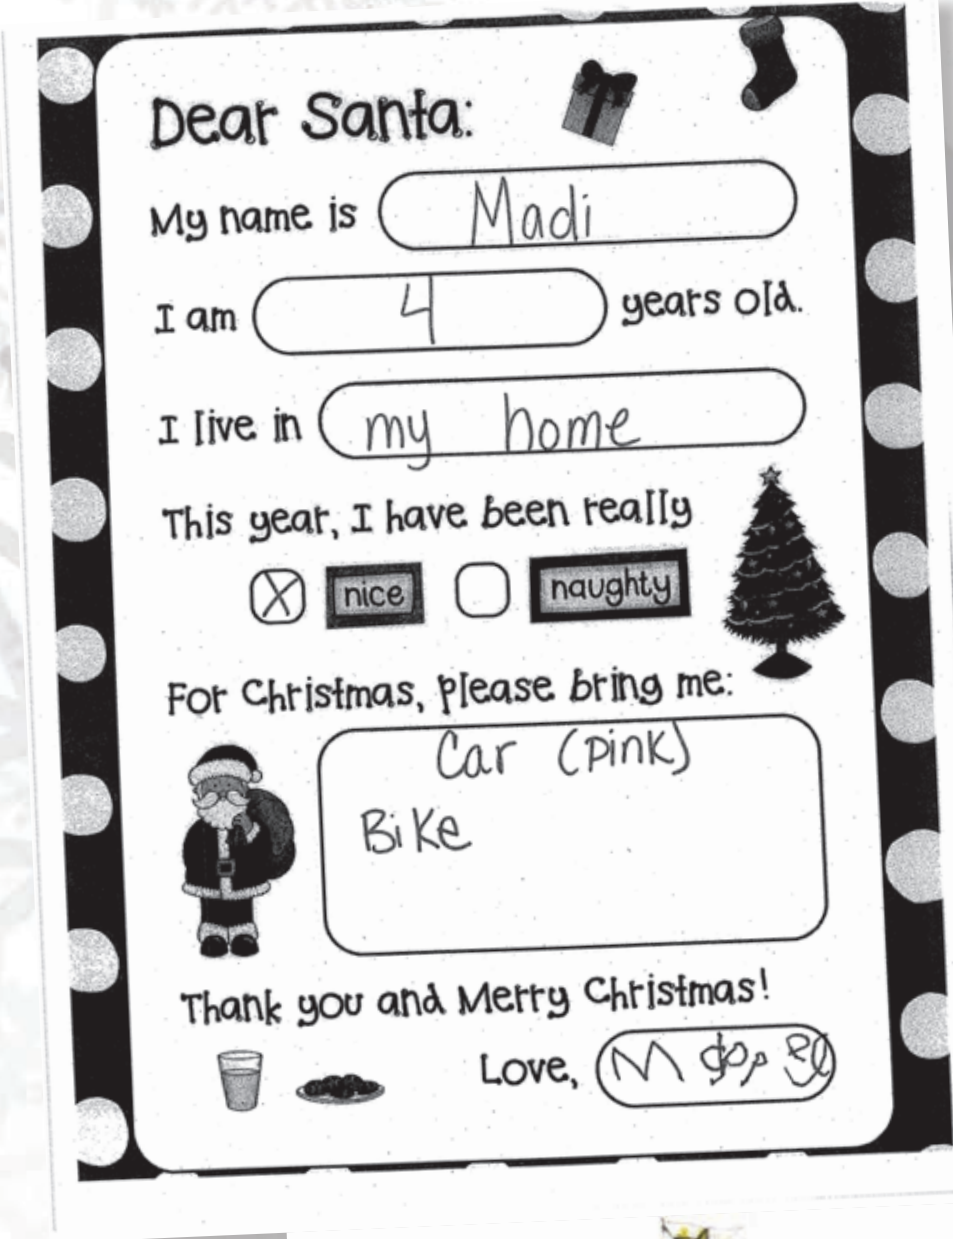 Dear Santa:
My name is Madi
I am 4 years old.
I live in my home
This year, I have been really
X nice naughty
For Christmas, please bring me:
Car (Pink)
Bike
Thank you and Merry Christmas!
Love, M